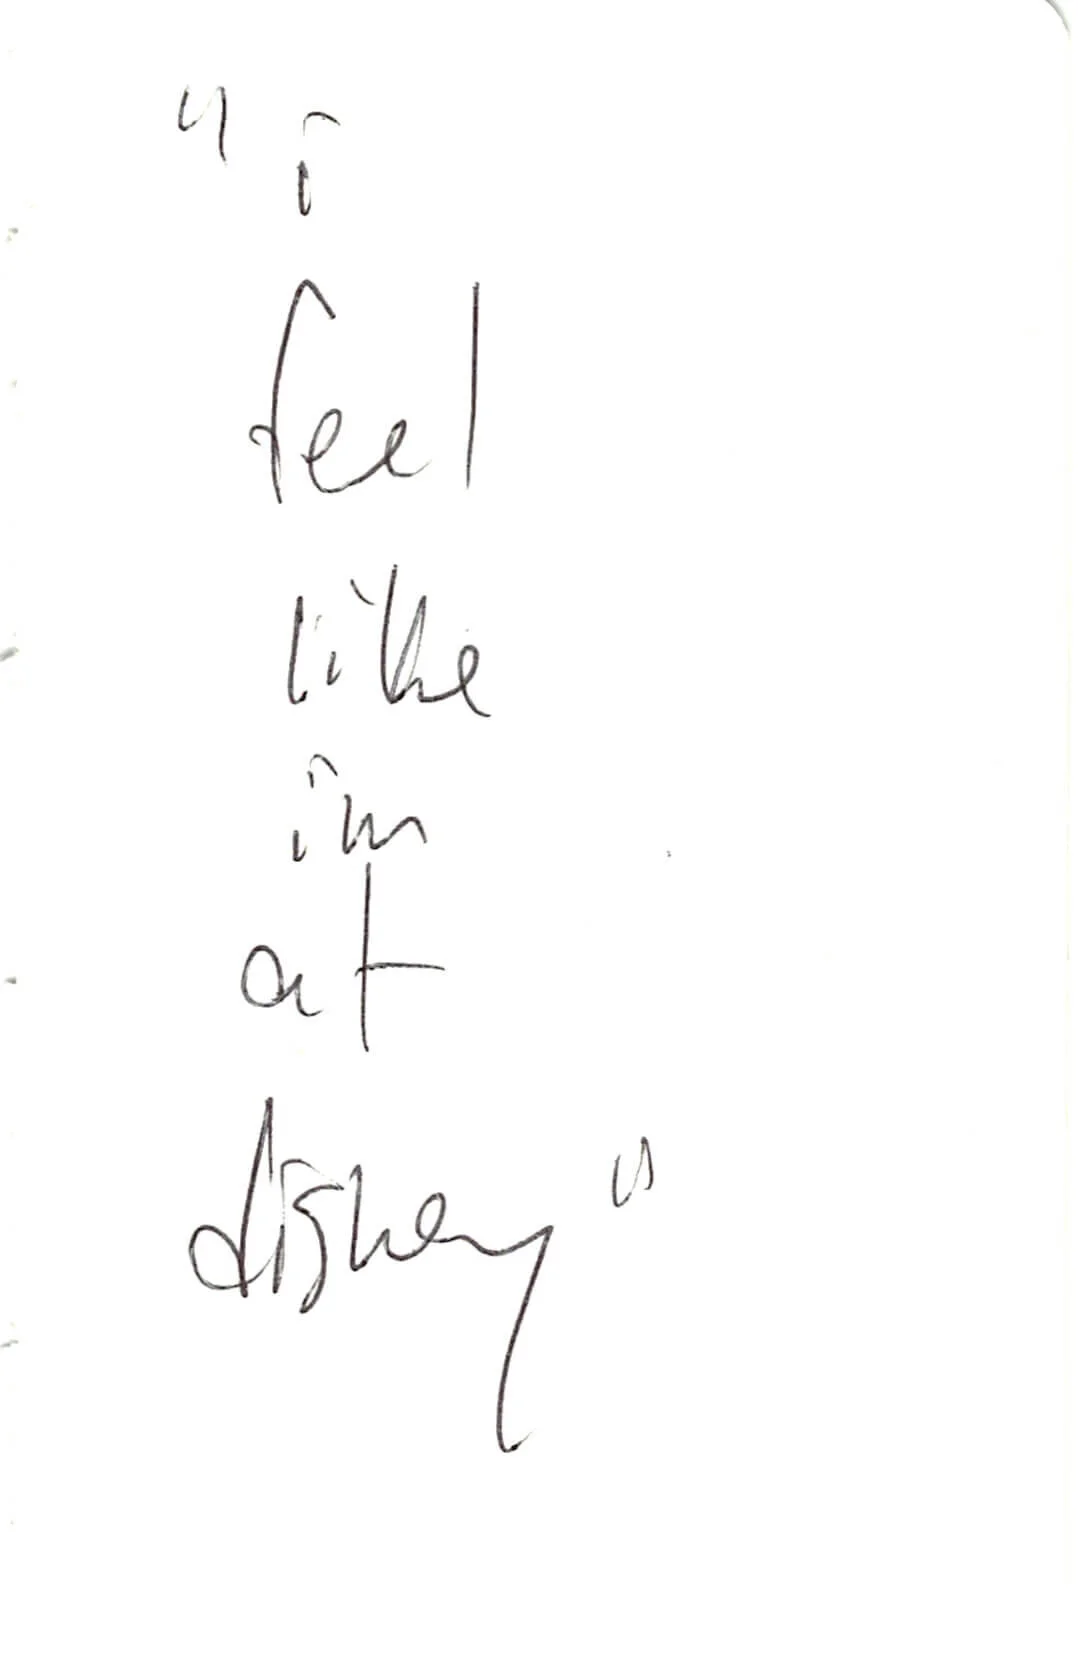 "i
feel
like
im
at
disney"